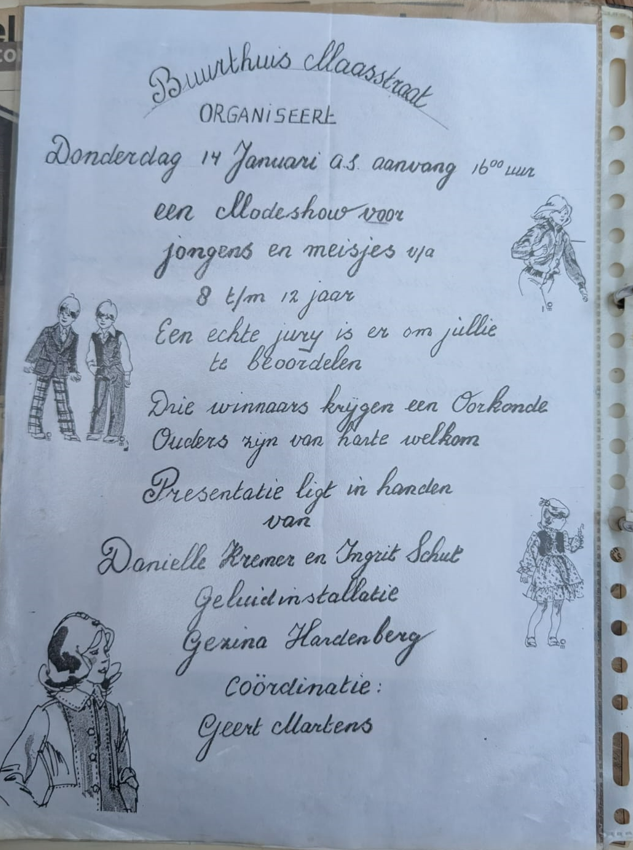 Buurthuis Maasstraat
ORGANISEERT
Donderdag 14 Januari a.s. aanvang 16⁰⁰ uur
een Modeshow voor
jongens en meisjes v/a
8 t/m 12 jaar
Een echte jury is er om jullie
te beoordelen
Drie winnaars krijgen een Oorkonde
Ouders zijn van harte welkom
Presentatie ligt in handen
van
Danielle Kremer en Ingrit Schut
Geluidinstallatie
Gezina Hardenberg
Coördinatie:
Geert Martens